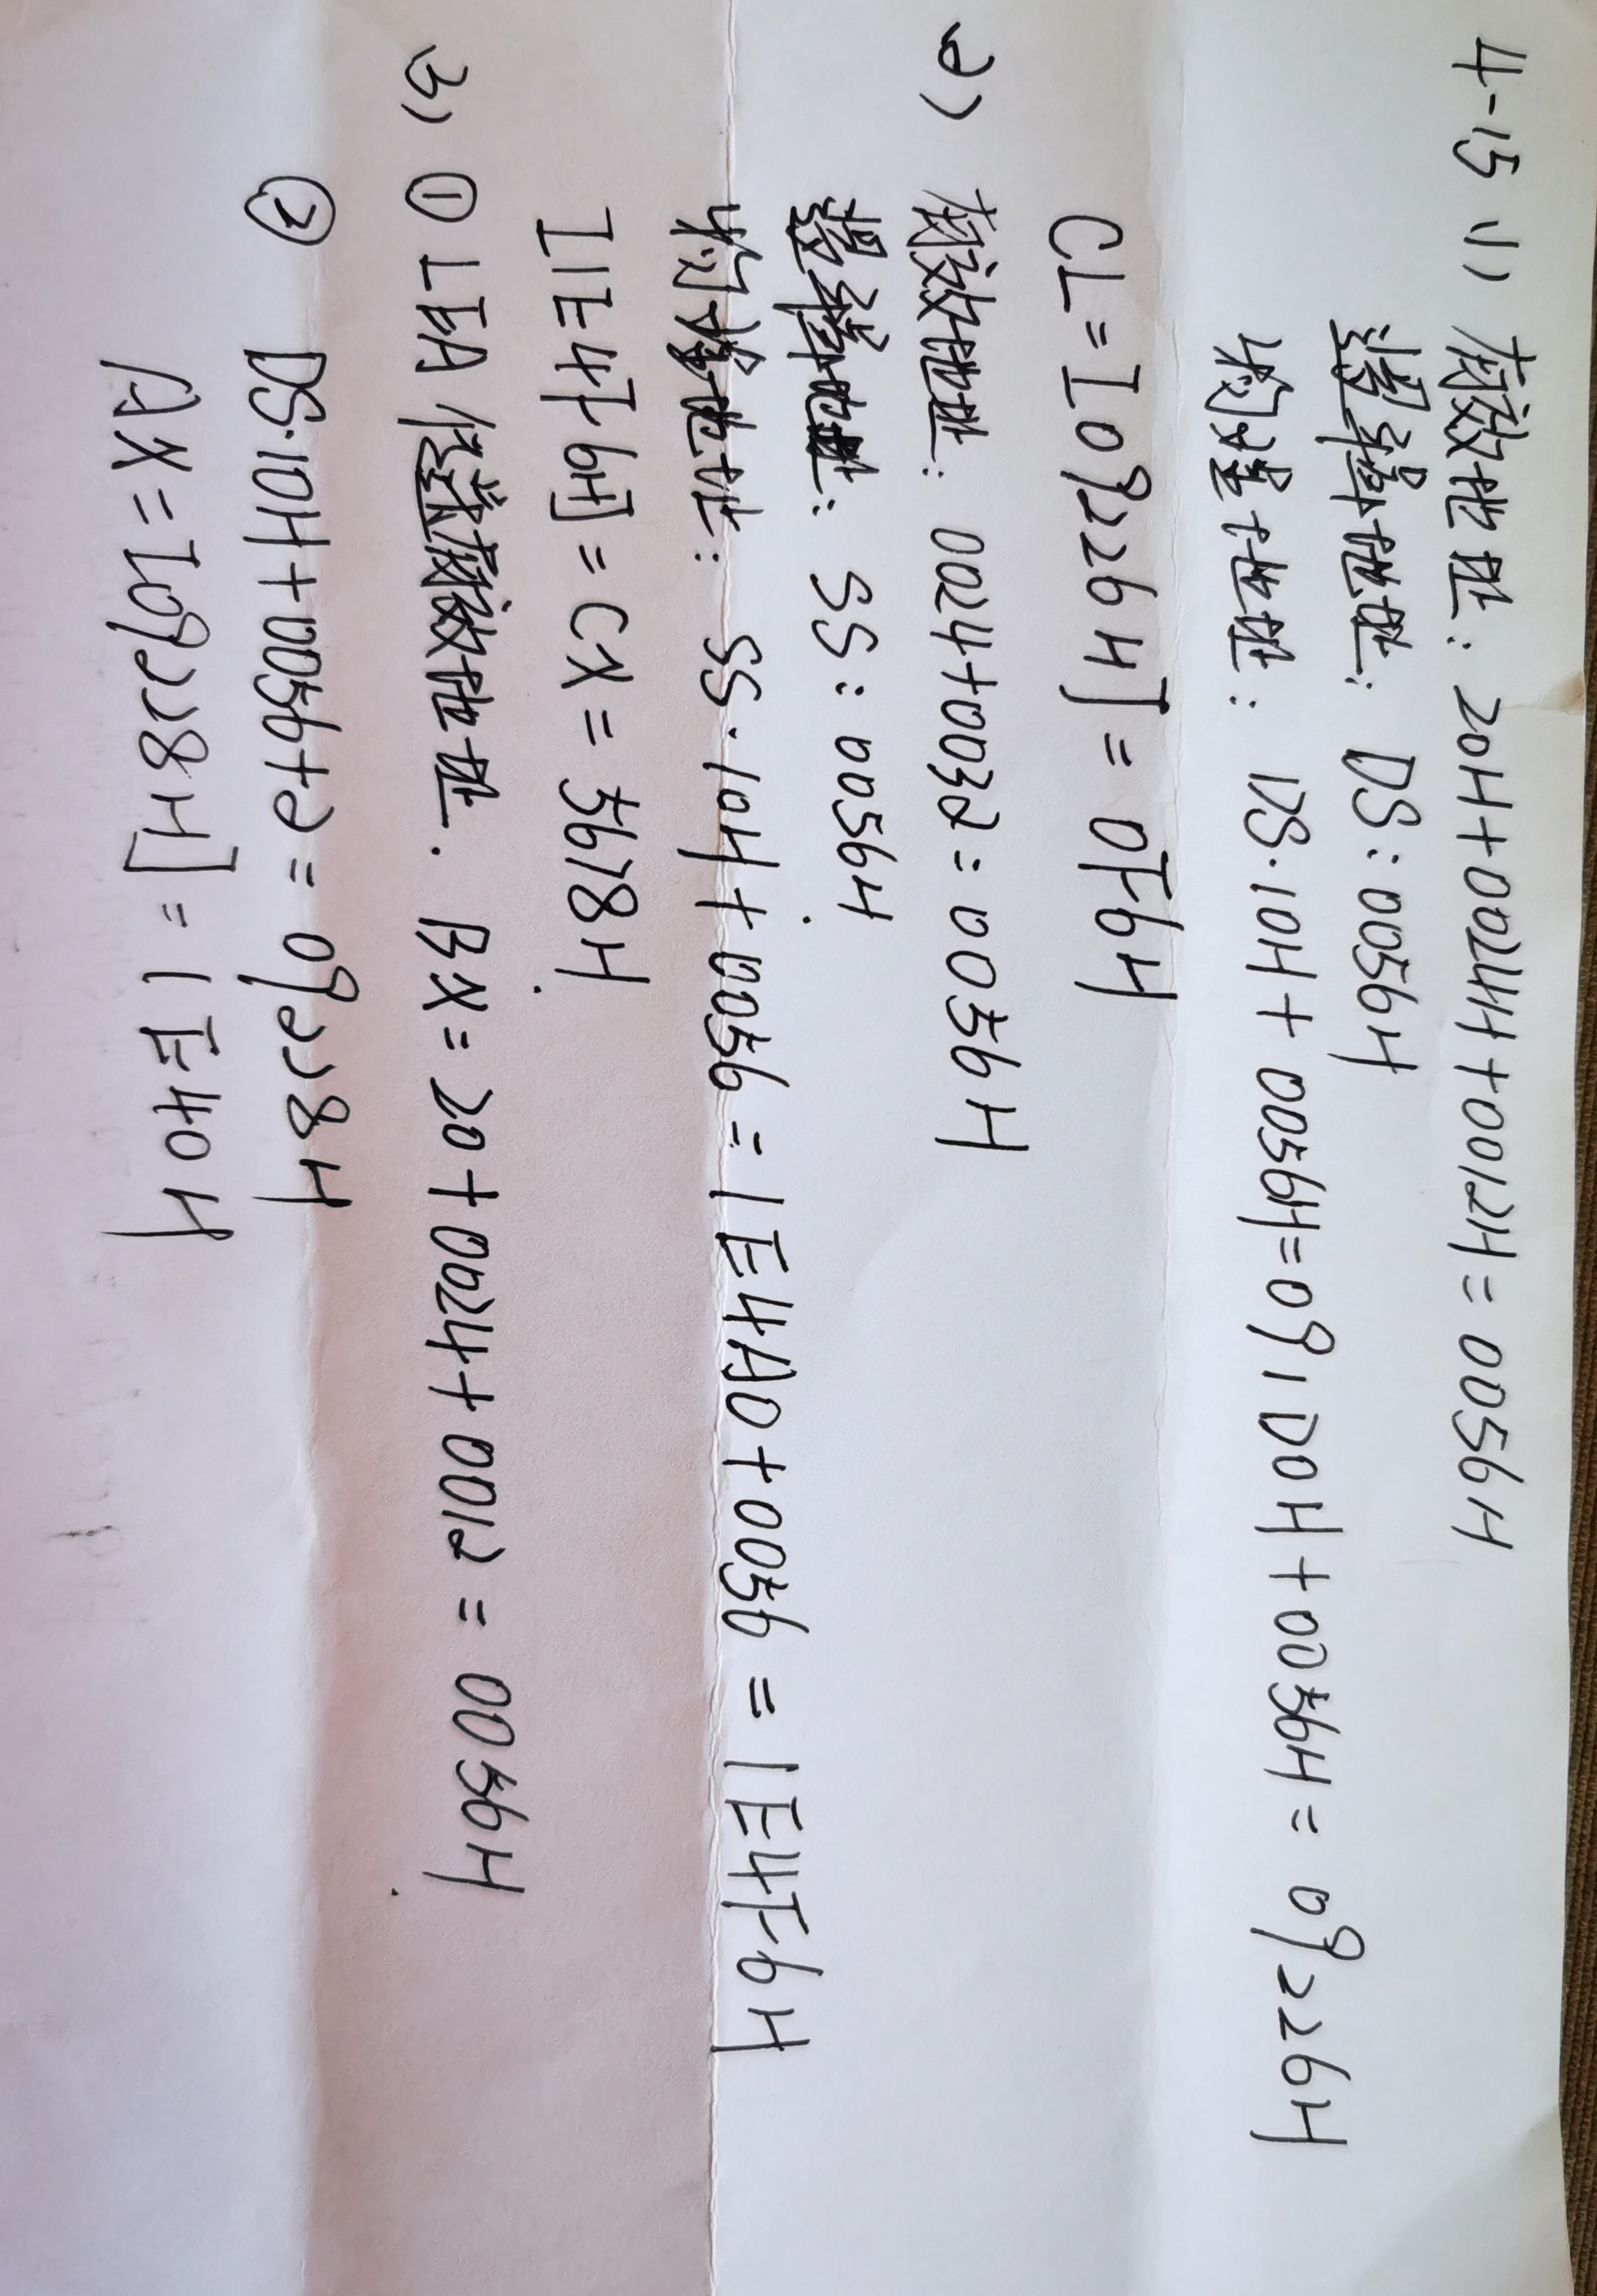 4-15 1) 有效地址: 20H+0024H+0012H=0056H
逻辑地址: DS:0056H
物理地址: DS·10H+0056H=091D0H+0056H=09226H
CL=[09226H]=0F6H
2) 有效地址: 0024+0032=0056H
逻辑地址: SS:0056H.
物理地址: SS·10H+0056=1E4A0+0056=1E4F6H
[1E4F6H]=CX=5678H.
3) ① LEA 传送有效地址. BX=20+0024+0012=0056H.
② DS·10H+0056+2=09228H
AX=[09228H]=1E40H